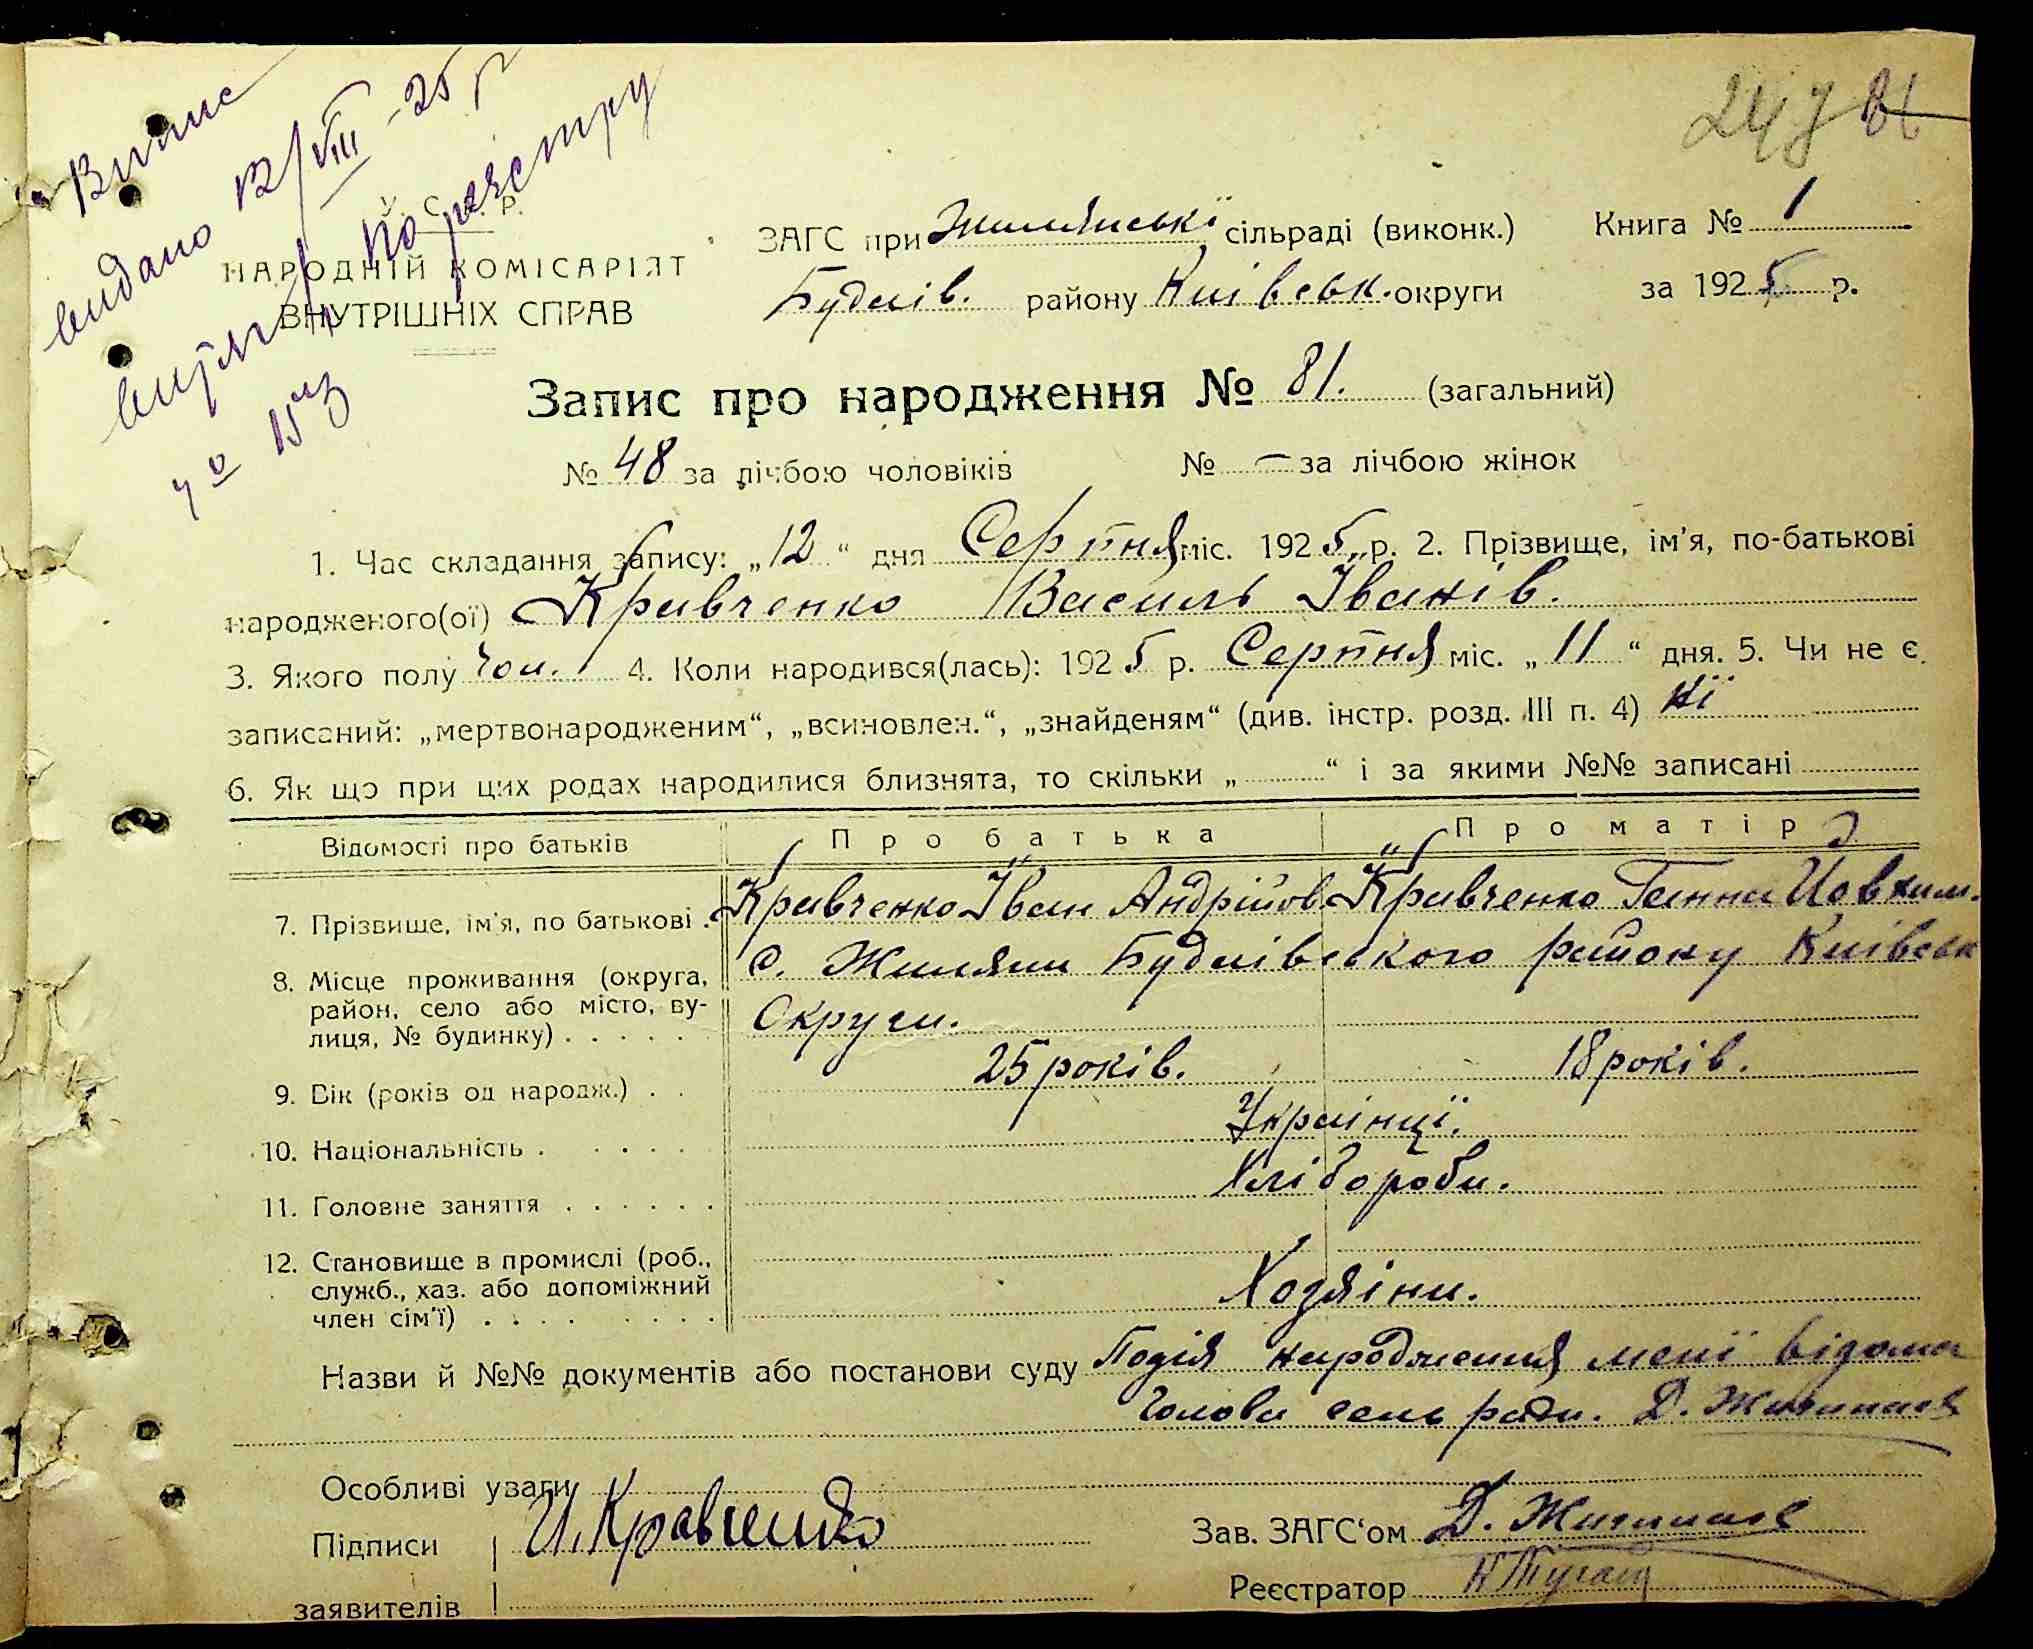 Випис
видано 12/VIII-25 р
витягу по реєстру
ч⁰ 15
247 81
У. С. Р. Р.
НАРОДНІЙ КОМІСАРІЯТ
ВНУТРІШНІХ СПРАВ
ЗАГС при Жилянські сільраді (виконк.)
Будаїв. району Київськ. округи
Книга № 1
за 1925 р.
Запис про народження № 81. (загальний)
№ 48 за лічбою чоловіків № — за лічбою жінок
1. Час складання запису: „12“ дня Серпня міс. 1925 р. 2. Прізвище, ім'я, по-батькові
народженого(ої) Кравченко Василь Іванів.
3. Якого полу чол. 4. Коли народився(лась): 1925 р. Серпня міс. „11“ дня. 5. Чи не є
записаний: „мертвонародженим“, „всиновлен.“, „знайденям“ (див. інстр. розд. III п. 4) ні
6. Як що при цих родах народилися близнята, то скільки „ “ і за якими №№ записані
Відомості про батьків Про батька Про матір
7. Прізвише, ім'я, по батькові . Кравченко Іван Андрійов Кравченко Ганна Йовхим.
8. Місце проживання (округа, с. Жиляни Будаївського району Київськ
район, село або місто, ву-
лиця, № будинку) . . . . . Округи.
9. Вік (років од народж.) . . 25 років. 18 років.
10. Національність . . . . . Українці.
11. Головне заняття . . . . . . Хлібороби.
12. Становище в промислі (роб.,
служб., хаз. або допоміжний Хозяіни.
член сім'ї) . . . . . . . .
Назви й №№ документів або постанови суду Подія народження мені відома
Голова сель ради. Д.
Особливі уваги
Підписи И. Кравченко Зав. ЗАГС'ом Д.
заявителів Реєстратор